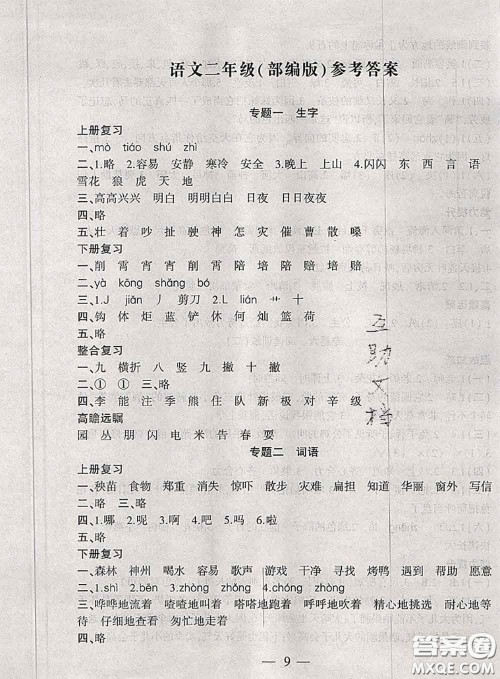 语文二年级(部编版)参考答案
专题一　生字
上册复习
一、mò　tiáo　shú　zhì
二、1.略　2.容易　安静　寒冷　安全　3.晚上　上山　4.闪闪　东　西　言　语
雪花　狼　虎　天　地
三、高高兴兴　明白　明明白白　日夜　日日夜夜
四、略
五、壮　着　吵　扯　驶　神　怎　灾　催　曹　散　嗓
下册复习
一、削　宵　宵　霄　霄　陪　培　赔　赔　培
二、yà　kōng　shāng　bó
三、1.J　jiān　丿　剪刀　2.L　lán　艹　十
四、钩　体　炬　蓝　铲　休　何　灿　篮　荷
五、略
整合复习
一、九　横折　八　竖　九　撇　十　撇
二、①　①　三、略
四、李　能　注　季　熊　住　队　新　极　对　辛　级
高瞻远瞩
园　丛　朋　闪　电　米　告　春　要
专题二　词语
上册复习
一、秧苗　食物　郑重　消失　惊吓　散步　灾难　扁担　知道　华丽　窗外　写信
二、略　三、略
四、1.哪　2.呢　3.啊　4.吧　5.吗　6.啦
五、略
下册复习
一、森林　神州　喝水　容易　歌声　游戏　干净　寻找　烤鸭　遇到　帮助　愿意
二、1.shì　2.bēn　3.zhòng　zhōng　4.chóng　zhòng
三、哗哗地流着　喳喳地叫着　嗒嗒地跑着　呼呼地吹着　精心地挑选　耐心地等
待　仔细地查看　匆忙地走着
四、略
互助文档
9
答案圈
MXQE.COM